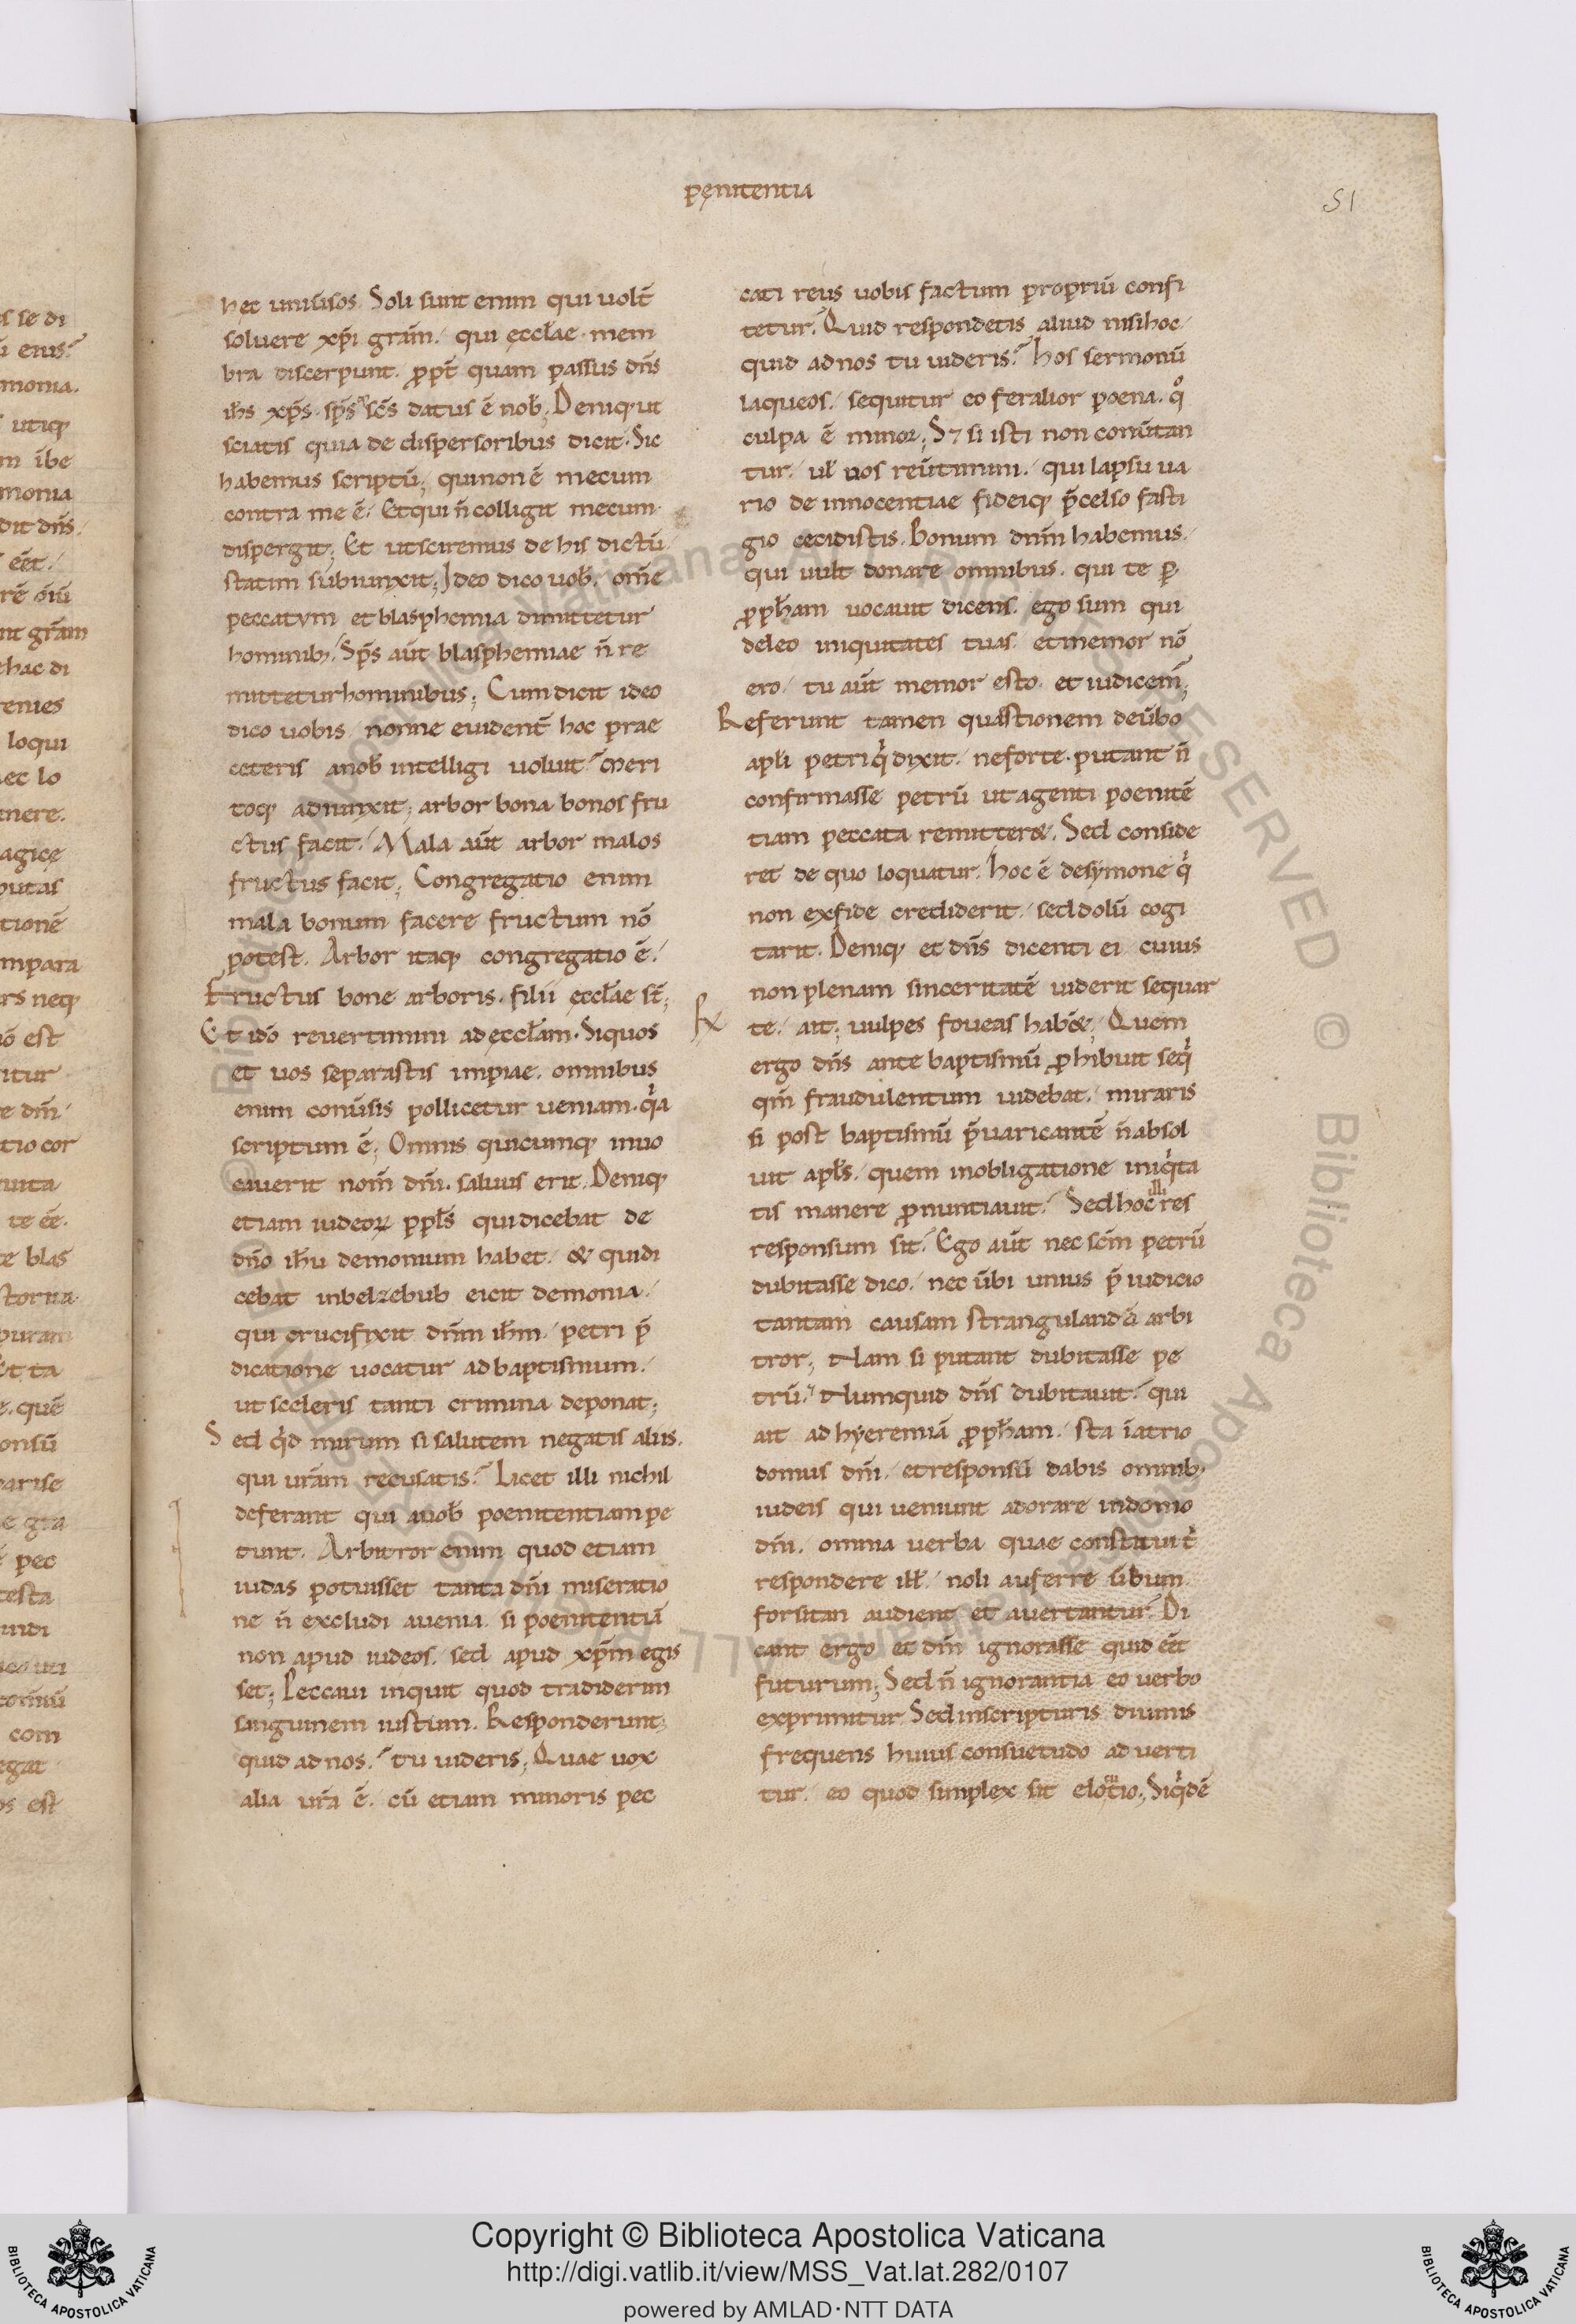 pęnitentia
51
het uniūsos. Soli sunt enim qui uolt̄
soluere xp̄i gr̄am. qui ęccl̄ae mem
bra discerpunt. ꝓpt̄ quam passus dn̄s
ih̄s xp̄s. sp̄s sc̄s datus ē nob̄; Deniq; ut
sciatis quia de dispersoribus dicit. Sic
habemus scriptū; qui non ē mecum
contra me ē. Et qui n̄ colligit mecum
dispergit; Et ut sciremus de his dictū
statim subiunxit; Ideo dico uob̄. om̄e
peccatum et blasphemia dimittetur
hominib; Sp̄s aūt blasphemiae n̄ re
mittetur hominibus; Cum dicit ideo
dico uobis nonne euident̄ hoc prae
ceteris a nob̄ intelligi uoluit? Meri
toq; adiunxit; arbor bona bonos fru
ctus facit. Mala aūt arbor malos
fructus facit; Congregatio enim
mala bonum facere fructum nō
potest. Arbor itaq; congregatio ē.
Fructus bone arboris. filii ęccl̄ae st̄;
Et idō reuertimini ad ęccl̄am. Siquos
et uos separastis impiae. omnibus
enim conūsis pollicetur ueniam. q̇a
scriptum ē; Omnis quicumq; inuo
cauerit nom̄ dn̄i. saluus erit. Deniq;
etiam iudeoꝝ ppl̄s qui dicebat de
dn̄o ih̄u demonium habet. & qui di
cebat in belzebub eicit demonia.
qui crucifixit dn̄m ih̄m. petri p̄
dicatione uocatur ad baptismum.
ut sceleris tanti crimina deponat;
Sed q̇d mirum si salutem negatis aliis.
qui ur̄am recusatis? Licet illi nichil
deferant qui a uob̄ poenitentiam pe
tunt. Arbitror enim quod etiam
iudas potuisset tanta dn̄i miseratio
ne n̄ excludi a uenia. si poenitentiā
non apud iudeos. sed apud xp̄m egis
set; Peccaui inquit quod tradiderim
sanguinem iustum. Responderunt;
quid ad nos? tu uideris; Quae uox
alia ur̄a ē. cū etiam minoris pec
cati reus uobis factum propriū confi
tetur? Quid respondetis aliud nisi hoc.
quid ad nos tu uideris? Hos sermonū
laqueos. sequitur eo feralior poena. q̊
culpa ē minor; S7 si isti non conūtan
tur. ul̄ uos reūtimini. qui lapsu ua
rio de innocentiae fideiq; p̄celso fasti
gio cecidistis. Bonum dn̄m habemus.
qui uult donare omnibus. qui te ꝑ
ꝓph̄am uocauit dicens. ego sum qui
deleo iniquitates tuas. et memor nō
ero. tu aūt memor esto. et iudicem̄;
Referunt tamen quęstionem de ūbo
apl̄i petri q̇ dixit. ne forte. putant n̄
confirmasse petrū ut agenti poenitē
tiam peccata remitter&. Sed conside
ret de quo loquatur. Hoc ē de symone q̇
non ex fide crediderit. sed dolū cogi
tarit. Deniq; et dn̄s dicenti ei cuius
non plenam sinceritatē uiderit sequar
te. ait; uulpes foueas hab&. Quem
ergo dn̄s ante baptismū ꝓhibuit seq̇
qm̄ fraudulentum uidebat. miraris
si post baptismū p̄uaricantē n̄ absol
uit apl̄s. quem in obligatione iniq̇ta
tis manere ꝓnuntiauit? Sed hoc illi res
responsum sit. Ego aūt nec sc̄m petrū
dubitasse dico. nec ūbi unius p̄iudicio
tantam causam strangulandā arbi
tror; Nam si putant dubitasse pe
trū. Numquid dn̄s dubitauit? qui
ait ad hyeremiā ꝓph̄am. sta ī atrio
domus dn̄i. et responsū dabis omnib;
iudeis qui ueniunt adorare in domo
dn̄i. omnia uerba quae constitui t̄
respondere ill̄. noli auferre ūbum
forsitan audient et auertantur. Di
cant ergo et dn̄m ignorasse quid ēēt
futurum; Sed n̄ ignorantia eo uerbo
exprimitur. Sed in scripturis diuinis
frequens huius consuetudo aduerti
tur. eo quod simplex sit elocutio; Siq̇dē
Copyright © Biblioteca Apostolica Vaticana
http://digi.vatlib.it/view/MSS_Vat.lat.282/0107
powered by AMLAD·NTT DATA